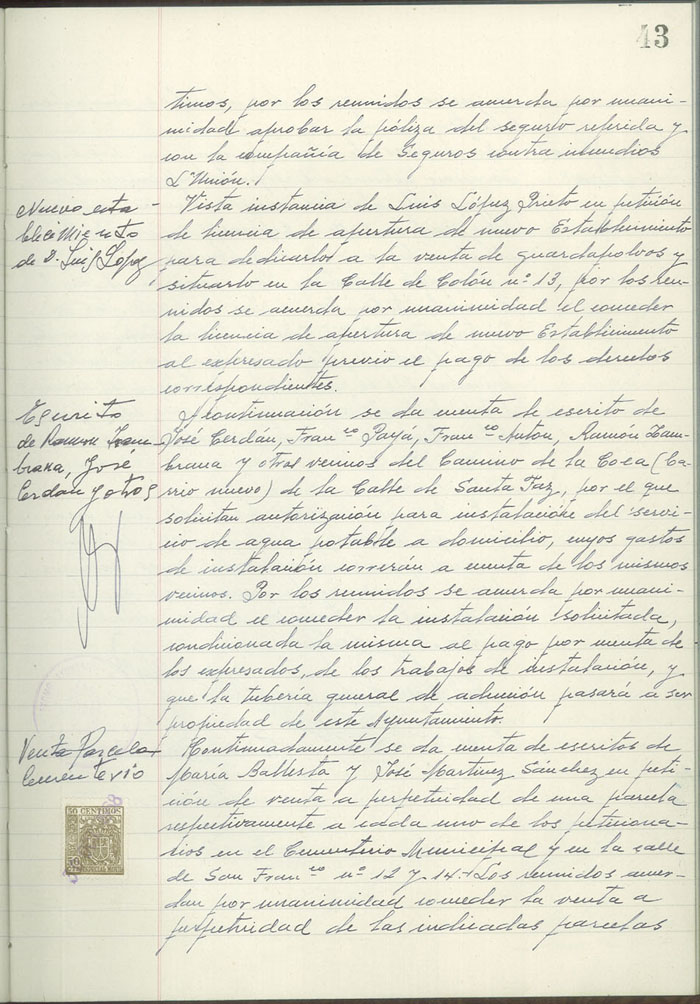 43
timos, por los reunidos se acuerda por unani-
midad aprobar la póliza del seguro referida y
con la compañía de Seguros contra incendios
L'Unión.
Nuevo esta-
blecimiento
de D. Luis López
Vista instancia de Luis López Prieto en petición
de licencia de apertura de nuevo Establecimiento
para dedicarlos a la venta de guardapolvos y
situarlo en la Calle de Colón nº 13, por los reu-
nidos se acuerda por unanimidad el conceder
la licencia de apertura de nuevo Establecimiento
al expresado previo el pago de los derechos
correspondientes.
Escrito
de Ramon Zam
brana, José
Cerdán y otros
A continuación se da cuenta de escrito de
José Cerdán, Franco Payá, Franco Anton, Ramón Zam-
brana y otros vecinos del Camino de la Coca (Ba-
rrio nuevo) de la Calle de Santa Faz, por el que
solicitan autorización para instalación del servi-
cio de agua potable a domicilio, cuyos gastos
de instalación correrán a cuenta de los mismos
vecinos. Por los reunidos se acuerda por unani-
midad el conceder la instalación solicitada,
condicionada la misma al pago por cuenta de
los expresados, de los trabajos de instalación, y
que la tubería general de aducción pasará a ser
propiedad de este Ayuntamiento.
Venta Parcelas
Cementerio
Continuadamente se da cuenta de escritos de
María Ballesta y José Martinez Sánchez en peti-
ción de venta a perpetuidad de una parcela
respectivamente a cada uno de los peticiona-
rios en el Cementerio Municipal y en la calle
de San Franco nº 12 y 14.- Los reunidos acuer-
dan por unanimidad conceder la venta a
perpetuidad de las indicadas parcelas
50 CENTIMOS
50